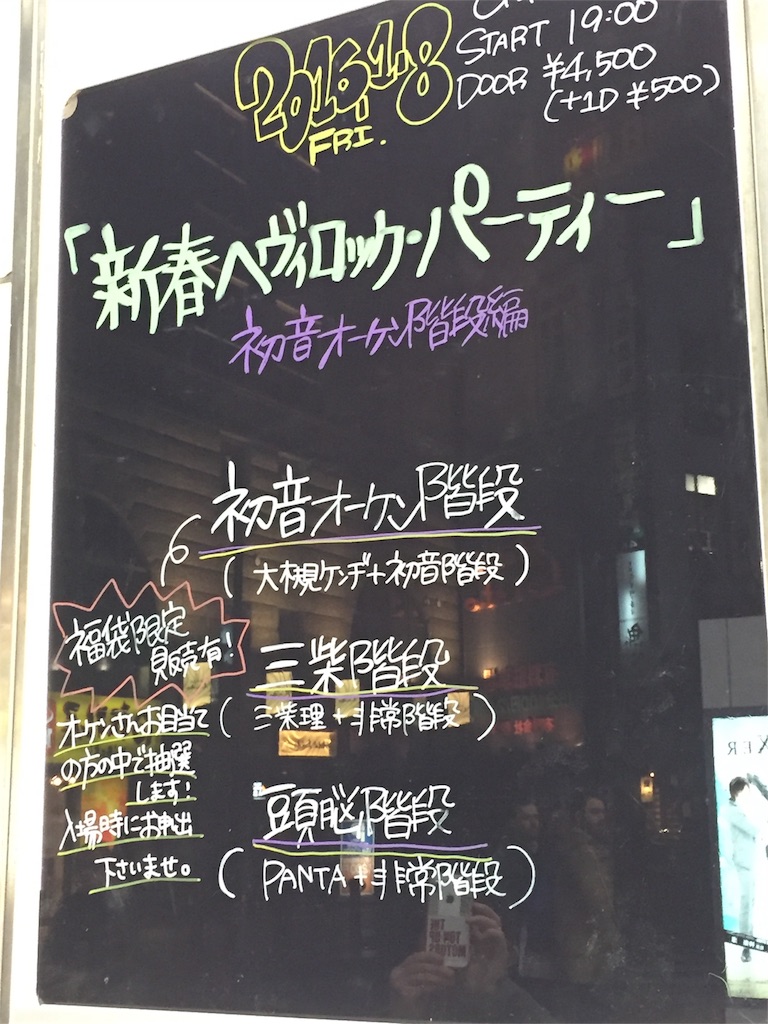 2016.1.8
FRI.
START 19:00
DOOR ¥4,500
(+1D ¥500)
「新春ヘヴィロック・パーティー」
初音オーケン階段編
初音オーケン階段
(大槻ケンヂ+初音階段)
福袋限定
販売有!
オーケンさんお目当て
の方の中で抽選
します!
入場時にお申出
下さいませ。
三柴階段
(三柴理+非常階段)
頭脳階段
(PANTA+非常階段)